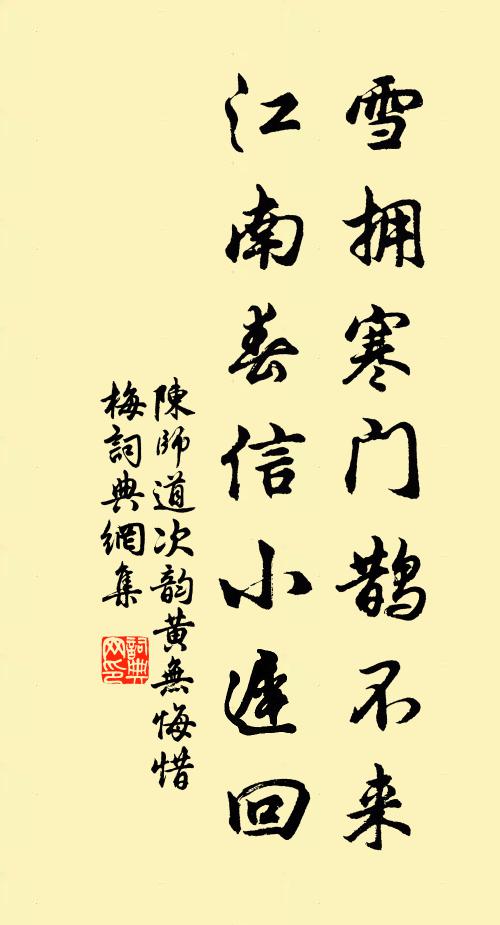 雪拥寒门鹊不来
江南春信小遲回
陳師道次韵黄無悔惜
梅詞典網集
詞典网印